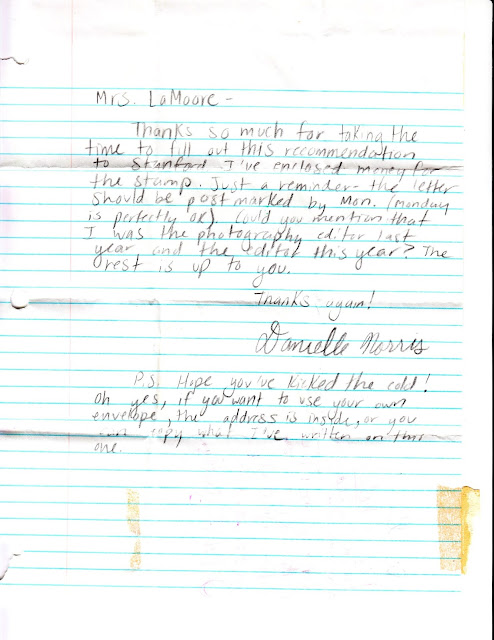 Mrs. LaMoore -
Thanks so much for taking the
time to fill out this recommendation
to Stanford. I've enclosed money for
the stamp. Just a reminder- the letter
should be postmarked by Mon. (Monday
is perfectly OK). Could you mention that
I was the photography editor last
year and the editor this year? The
rest is up to you.
Thanks again!
Danielle Norris
P.S. Hope you've kicked the cold!
Oh yes, if you want to use your own
envelope, the address is inside, or you
can copy what I've written on this
one.